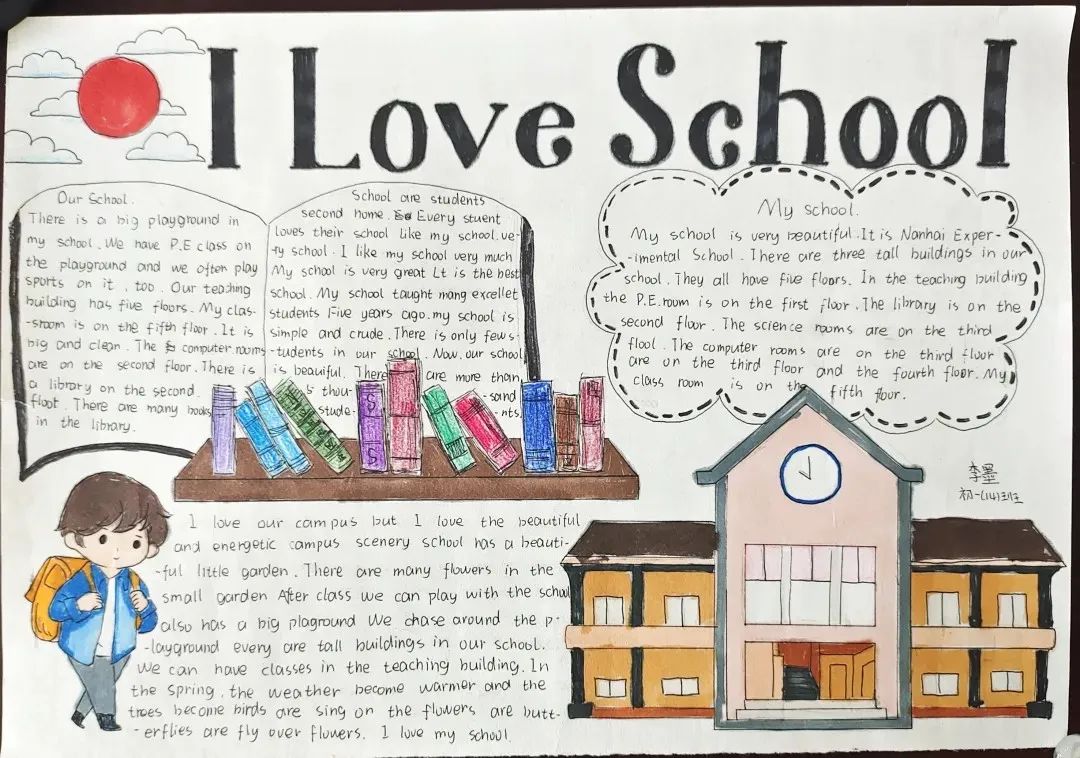 I Love School
Our School.
There is a big playground in
my school. We have P.E class on
the playground and we often play
sports on it, too. Our teaching
building has five floors. My clas-
-sroom is on the fifth floor. It is
big and clean. The computer rooms
are on the second floor. There is
a library on the second.
floot. There are many books
in the library.
School are students
second home. Every stuent
loves their school like my school. ve-
ry school. I like my school very much
My school is very great Lt is the best
school. My school taught mang excellet
students Five years ago. my school is
simple and crude. There is only few s-
-tudents in our school. Now. our school
is beauiful. There are more than
5 thou- -sand
stude- -nts.
My school.
My school is very beautiful. It is Nanhai Exper-
-imental School. There are three tall buildings in our
school. They all have five floors. In the teaching building
the P.E.room is on the first floor. The library is on the
second floor. The science rooms are on the third
flool. The computer rooms are on the third floor
are on the third floor and the fourth floor. My
class room is on the fifth flour.
李墨
初一(14)班
I love our campus but I love the beautiful
and energetic campus scenery school has a beauti-
-ful little garden. There are many flowers in the
small garden After class we can play with the school
also has a big plaground We chase around the p-
-layground every are tall buildings in our school.
We can have classes in the teaching building. In
the spring, the weather become warmer and the
trees become birds are sing on the flowers are butt-
-erflies are fly over flowers. I love my school.